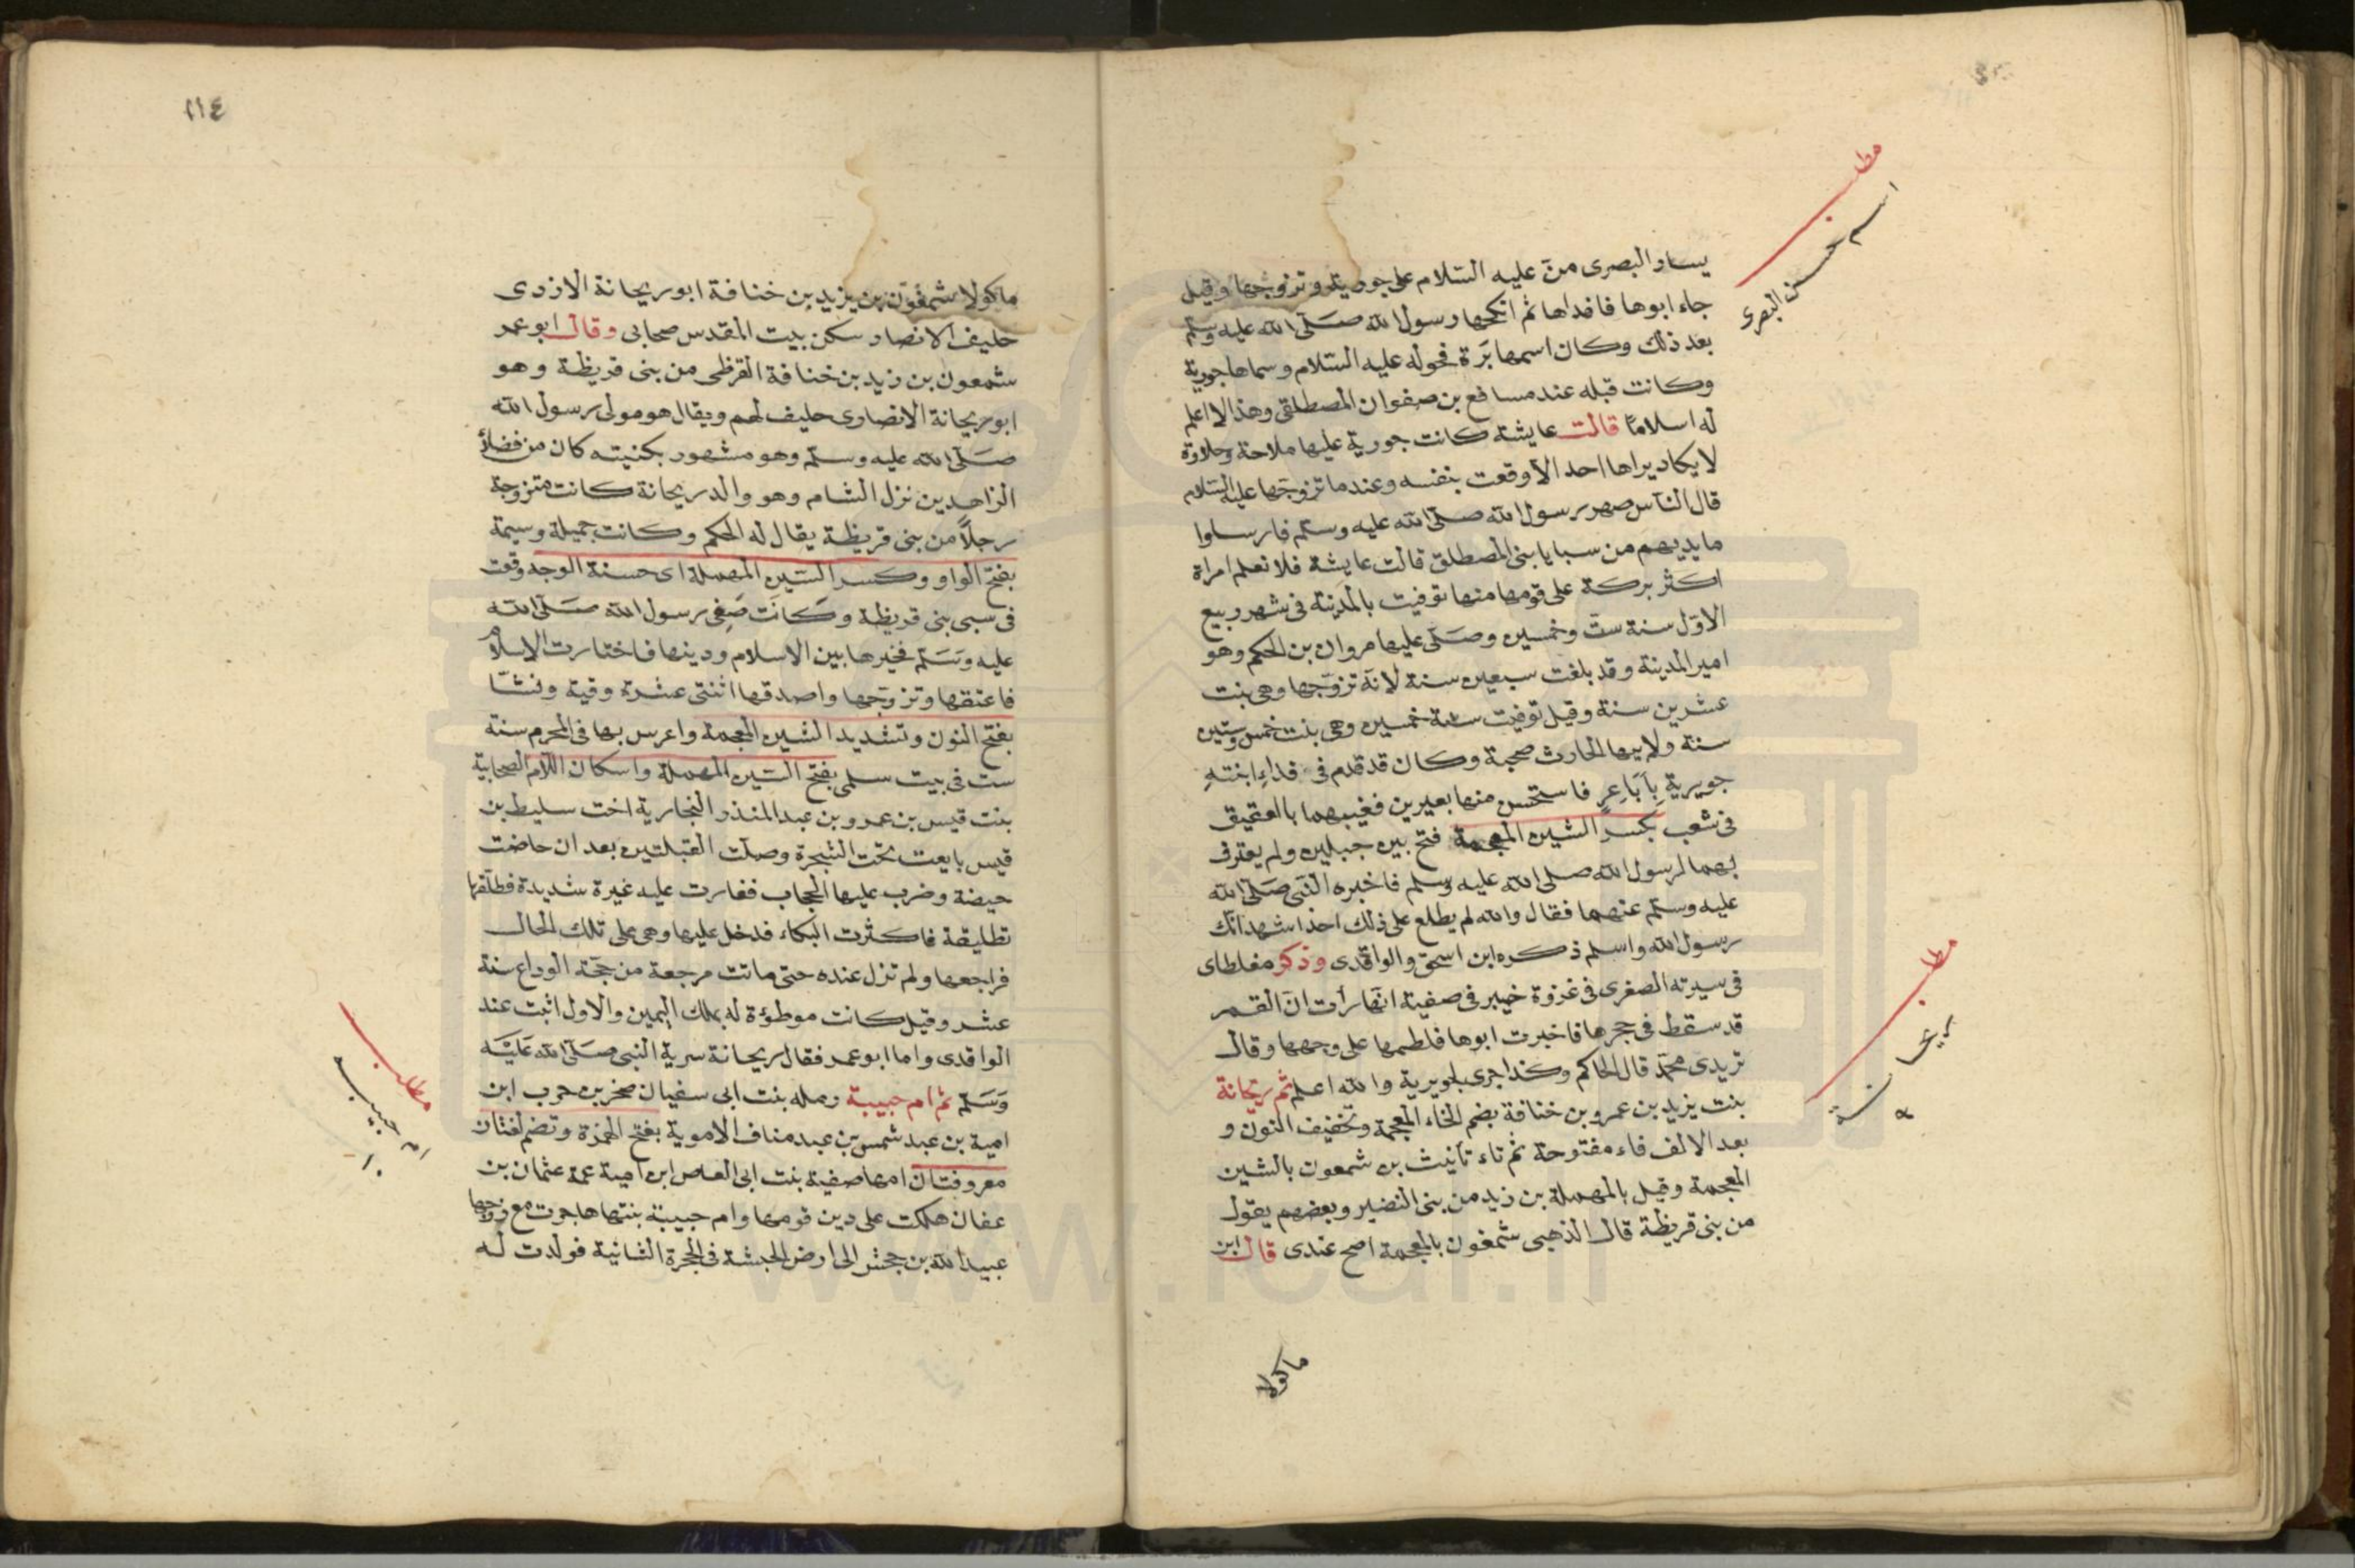 مطلب
اسم حسن البصرى
يسار البصرى منّ عليه السّلام على جويرية وتزوّجها وقيل
جاء ابوها فافداها ثم انكحها رسول الله صَلّى الله عليه وسَلّم
بعد ذلك وكان اسمها بَرّة فحوله عليه السّلام وسماها جويرية
وكانت قبله عند مسافع بن صفوان المصطلقى وهذا لا اعلم
له اسلامًا قالت عايشة كانت جويرية عليها ملاحة وحلاوة
لا يكاد يراها احد الاّ وقعت بنفسه وعندما تزوّجها عليه السّلام
قال النّاس صهر رسول الله صلّى الله عليه وسلّم فارسلوا
ما بايديهم من سبايا بنى المصطلق قالت عايشة فلا نعلم امراة
اكثر بركة على قومها منها توفيت بالمدينة فى شهر ربيع
الاوّل سنة ستّ وخمسين وصَلّى عليها مروان بن الحكم وهو
امير المدينة وقد بلغت سبعين سنة لانّه تزوّجها وهى بنت
عشرين سنة وقيل توفيت سنة خمسين وهى بنت خمس وستين
سنة ولابيها الحارث صحبة وكان قد قدم فى فداء ابنتهِ
جويرية بِاَبَاعِرٍ فاستحسن منها بعيرين فغيبهما بالعقيق
فى شعب بكسر الشين المعجمة فتح بين جبلين ولم يعترف
بهما لرسول الله صلى الله عليه وسلم فاخبره النّبى صَلّى الله
عليه وسلّم عنهما فقال والله لم يطلع على ذلك احد اشهد انّك
رسول الله واسلم ذكره ابن اسحق والواقدى وذكر مغلطاى
فى سيرته الصغرى فى غزوة خيبر فى صفية انّها رأت انّ القمر
قد سقط فى حجرها فاخبرت ابوها فلطمها على وجهها وقال
تريدى محمّد قال الحاكم وكذا جرى لجويرية والله اعلم ثم ريحانة
بنت يزيد بن عمرو بن خنافة بضم الخاء المعجمة وتخفيف النون و
بعد الالف فاء مفتوحة ثم تاء تأنيث بن شمعون بالشين
المعجمة وقيل بالمهملة بن زيد من بنى النضير وبعضهم يقول
من بنى قريظة قال الذهبى شمغون بالمعجمة اصح عندى قال ابن
مطلب
ريحانة
٩
ماكولا
١١٤
ماكولا شمغون بن يزيد بن خنافة ابو ريحانة الازدى
حليف الانصار سكن بيت المقدس صحابى وقال ابو عمر
شمعون بن زيد بن خنافة القرظى من بنى قريظة وهو
ابو ريحانة الانصارى حليف لهم ويقال هو مولى رسول الله
صَلّى الله عليه وسلّم وهو مشهور بكنيته كان من فضلاء
الزاهدين نزل الشام وهو والد ريحانة كانت متزوجة
رجلاً من بنى قريظة يقال له الحكم وكانت جميلة وسيمة
بفتح الواو وكسر السّين المهملة اى حسنة الوجه وقعت
فى سبى بنى قريظة وكانَت صَفِى رسول الله صَلّى الله
عليه وسَلّم فخيرها بين الاسلام ودينها فاختارت الاسلام
فاعتقها وتزوّجها واصدقها اثنتى عشرة وقية ونشّا
بفتح النون وتشديد الشين المعجمة واعرس بها فى المحرم سنة
ست فى بيت سلمى بفتح السّين المهملة واسكان اللاّم الصحابية
بنت قيس بن عمرو بن عبد المنذر النجارية اخت سليط بن
قيس بايعت تحت الشجرة وصلّت القبلتين بعد ان حاضت
حيضة وضرب عليها الحجاب فغارت عليه غيرة شديدة فطلّقها
تطليقة فاكثرت البكاء فدخل عليها وهى على تلك الحال
فراجعها ولم تزل عنده حتى ماتت مرجعه من حجّة الوداع سنة
عشر وقيل كانت موطؤة له بملك اليمين والاول اثبت عند
الواقدى واما ابو عمر فقال ريحانة سرية النبى صَلّى الله عَليْه
وَسَلّم ثم ام حبيبة رمله بنت ابى سفيان صخر بن حرب ابن
امية بن عبد شمس بن عبد مناف الاموية بفتح الهمزة وتضم لغتان
معروفتان امها صفية بنت ابى العاص ابن امية عمة عثمان بن
عفان هلكت على دين قومها وام حبيبة بنتها هاجرت مع زوجها
عبيد الله بن جحش الى ارض الحبشة فى الهجرة الثانية فولدت له
مطلب
ام حبيبه
١٠